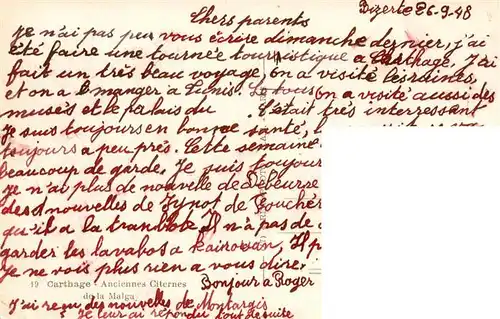 Bizerte 26-9-48
Chers parents
Je n'ai pas peu vous écrire dimanche dernier, j'ai
été faire une tournée touristique a Carthage. J'ai
fait un très beau voyage, on a visité les ruines,
et on a manger a Tunis. on a visité aussi des
musés et le palais du C'était très interressant
Je suis toujours en bonne santé,
toujours a peu près. Cette semaine
beaucoup de garde. Je suis toujour
Je n'ai plus de nouvelle de
des nouvelles de
qu'il a la Il n'a pas de
garder les lavabos a Kairouan, Il
Je ne vois plus rien a vous dire.
19 Carthage - Anciennes Citernes
de la Malga
Bonjour a Roger
J'ai reçu des nouvelles de Montargis
Je leur ai répondu tout de suite